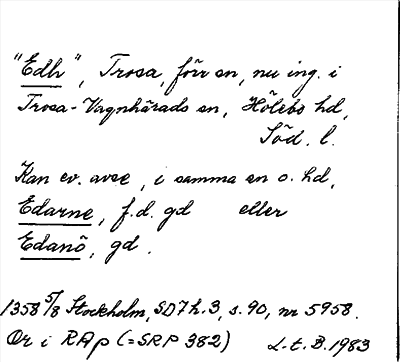 "Edh", Trosa, förr sn, nu ing. i
Trosa-Vagnhärads sn, Hölebo hd,
Söd. l.
Kan ev. avse, i samma sn o. hd,
Edarne, f.d. gd eller
Edanö, gd.
1358 5/8 Stockholm, SD7 h.3, s.90, nr 5958.
Or i RAp (=SRP 382) L.t.B.1983